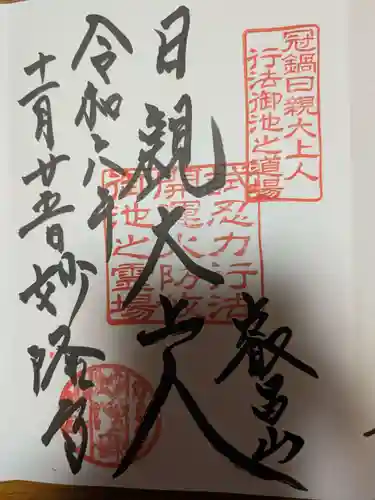 冠鍋日親大上人
行法御池之道場
叡昌山
日親大上人
試忍力行法
開運火防
御池之霊場
令和六年
十一月廿五日
妙隆寺